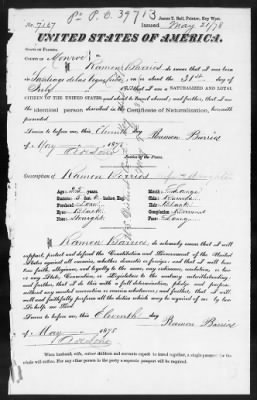 Pr P. O. 39713
James T. Ball, Printer, Key West.
No. 7167 Issued May 21/78
UNITED STATES OF AMERICA.
STATE OF FLORIDA,
COUNTY OF Monroe
I, Ramon Barrios do swear that I was born
in Santiago de las Vegas on or about the 31st day
of July that I am a NATURALIZED AND LOYAL
CITIZEN OF THE UNITED STATES and about to travel abroad; and further, that I am the
identical person described in the Certificate of Naturalization, herewith
presented
Sworn to before me, this Eleventh day Ramon Barrios
of May 1878
Notary Public
Description of Ramon Barrios
Age: years. Mouth:
Stature: feet inches, Eng. Chin: Round
Forehead: Hair: Black
Eyes: Black Complexion:
Nose: Straight Face: Long
I, Ramon Barrios do solemnly swear that I will
support, protect and defend the Constitution and Government of the United
States against all enemies, whether domestic or foreign; and that I will bear
true faith, allegiance, and loyalty to the same, any ordinance, resolution, or law
of any State, Convention, or Legislature to the contrary notwithstanding;
and further, that I do this with a full determination, pledge and purpose
without any mental reservation or evasion whatsoever; and further, that I will
well and faithfully perform all the duties which may be required of me by law.
So help me God.
Sworn to before me, this Eleventh day Ramon Barrios
of May 1878
When husband, wife, minor children and servants expect to travel together, a single passport for the
whole will suffice. For any other person in the party a separate passport will be required.